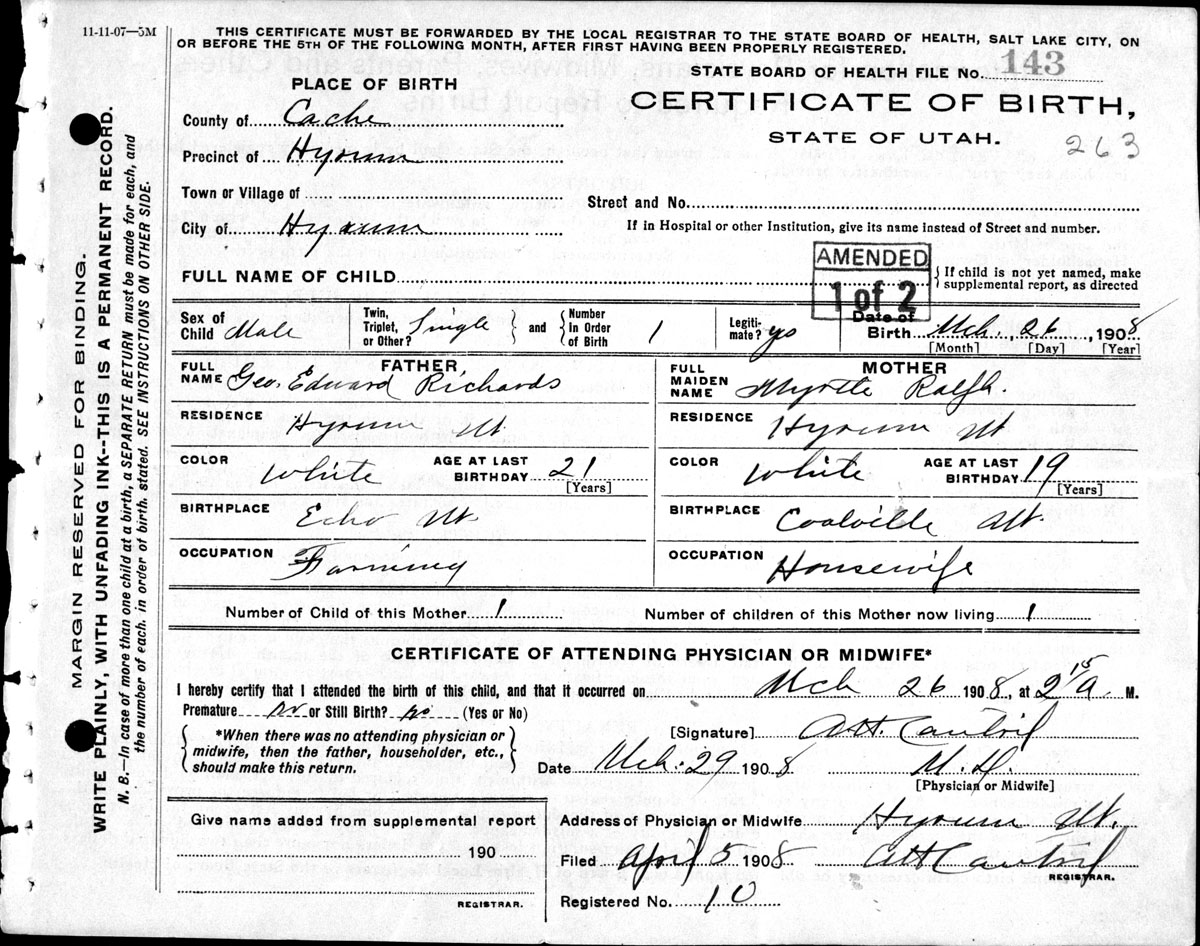 11-11-07—5M
THIS CERTIFICATE MUST BE FORWARDED BY THE LOCAL REGISTRAR TO THE STATE BOARD OF HEALTH, SALT LAKE CITY, ON
OR BEFORE THE 5TH OF THE FOLLOWING MONTH, AFTER FIRST HAVING BEEN PROPERLY REGISTERED.
STATE BOARD OF HEALTH FILE No. 143
PLACE OF BIRTH
CERTIFICATE OF BIRTH,
STATE OF UTAH.
263
County of Cache
Precinct of Hyrum
Town or Village of
Street and No.
City of Hyrum
If in Hospital or other Institution, give its name instead of Street and number.
AMENDED
1 of 2
FULL NAME OF CHILD
{ If child is not yet named, make
supplemental report, as directed
Sex of Child Male
Twin, Triplet, or Other? Single } and { Number In Order of Birth 1
Legiti- mate? yes
Date of Birth Mch. 26, 1908
[Month] [Day] [Year]
FATHER
FULL NAME Geo. Edward Richards
RESIDENCE Hyrum Ut.
COLOR White
AGE AT LAST BIRTHDAY 21
[Years]
BIRTHPLACE Echo Ut.
OCCUPATION Farming
MOTHER
FULL MAIDEN NAME Myrtle Ralph.
RESIDENCE Hyrum Ut
COLOR White
AGE AT LAST BIRTHDAY 19
[Years]
BIRTHPLACE Coalville Ut.
OCCUPATION Housewife
Number of Child of this Mother 1
Number of children of this Mother now living 1
CERTIFICATE OF ATTENDING PHYSICIAN OR MIDWIFE*
I hereby certify that I attended the birth of this child, and that it occurred on Mch 26 1908, at 2 15 A M.
Premature no or Still Birth? no (Yes or No)
{ *When there was no attending physician or
midwife, then the father, householder, etc.,
should make this return. }
[Signature]
Date Mch. 29 1908
M.D.
[Physician or Midwife]
Address of Physician or Midwife Hyrum Ut.
Filed April 5 1908
REGISTRAR.
Registered No. 10
Give name added from supplemental report
190
REGISTRAR.
MARGIN RESERVED FOR BINDING.
WRITE PLAINLY, WITH UNFADING INK--THIS IS A PERMANENT RECORD.
N. B.—In case of more than one child at a birth, a SEPARATE RETURN must be made for each, and
the number of each, in order of birth, stated. SEE INSTRUCTIONS ON OTHER SIDE.